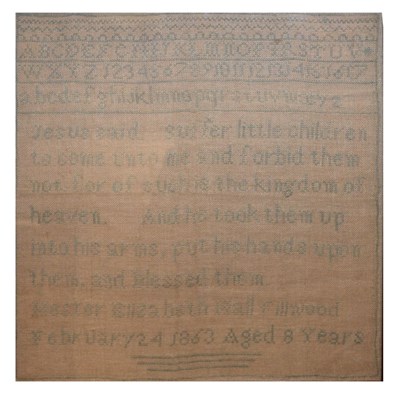 ABCDEFGHIJKLMNOPQRSTUV
WXYZ1234567891011121314151617
abcdefghijklmnopqrstuvwxyz
Jesus said suffer little children
to come unto me and forbid them
not for of such is the kingdom of
heaven. And he took them up
into his arms, put his hands upon
them, and blessed them
Hester Elizabeth
February 24 1863 Aged 8 Years